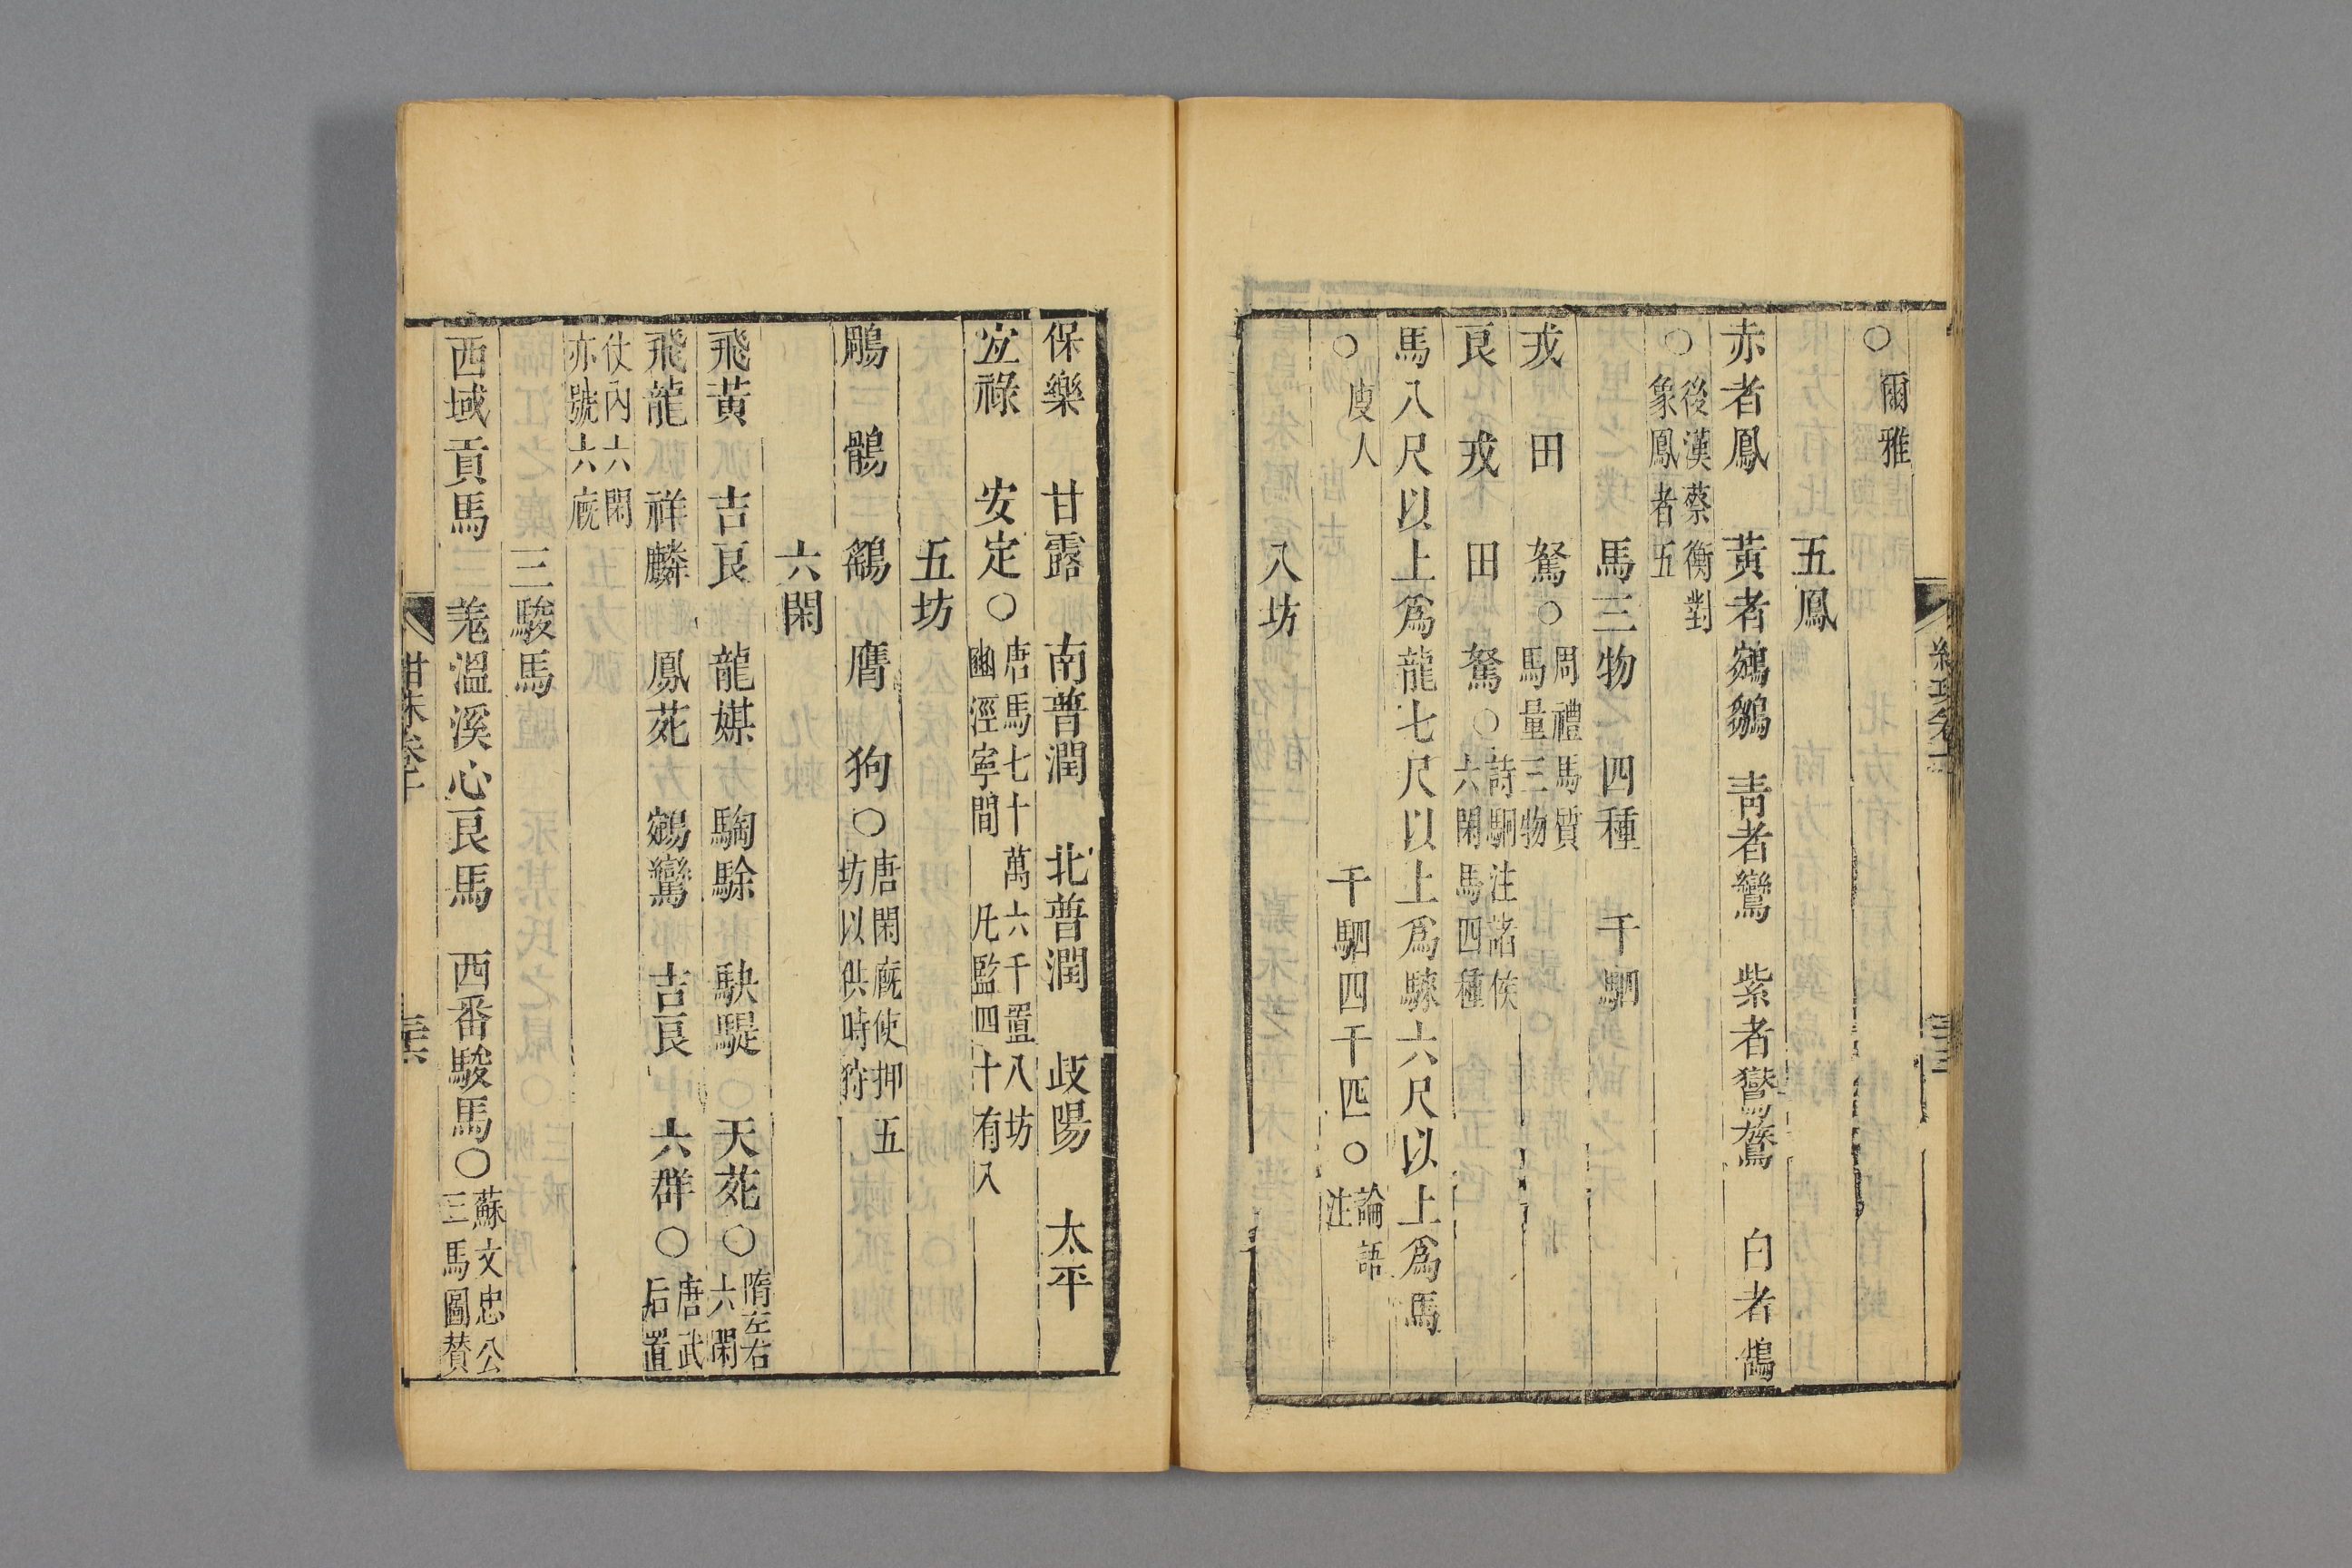 ○爾雅
五鳳
赤者鳳　黃者鵷鶵　青者鸞　紫者鸑鷟　白者鵠
○後漢蔡衡對
象鳳者五
馬三物　四種　千駟
戎　田　駑○周禮馬質
馬量三物
良　戎　田　駑○詩駉注諸侯
六閑馬四種
馬八尺以上爲龍七尺以上爲騋六尺以上爲馬
○廋人　千駟四千匹○論語
注
八坊
保樂　甘露　南普潤　北普潤　歧陽　太平
宜祿　安定○唐馬七十萬六千置八坊
豳涇寧間　凡監四十有八
五坊
鵰　鶻　鷂　鷹　狗○唐閑廐使押五
坊以供時狩
六閑
飛黃　吉良　龍媒　騊駼　駃騠　天苑○隋左右
六閑
飛龍　祥麟　鳳苑　鵷鸞　吉良　六群○唐武
后置
仗內六閑
亦號六廐
三駿馬
西域貢馬　羗溫溪心良馬　西番駿馬○蘇文忠公
三馬圖贊
紺珠卷十